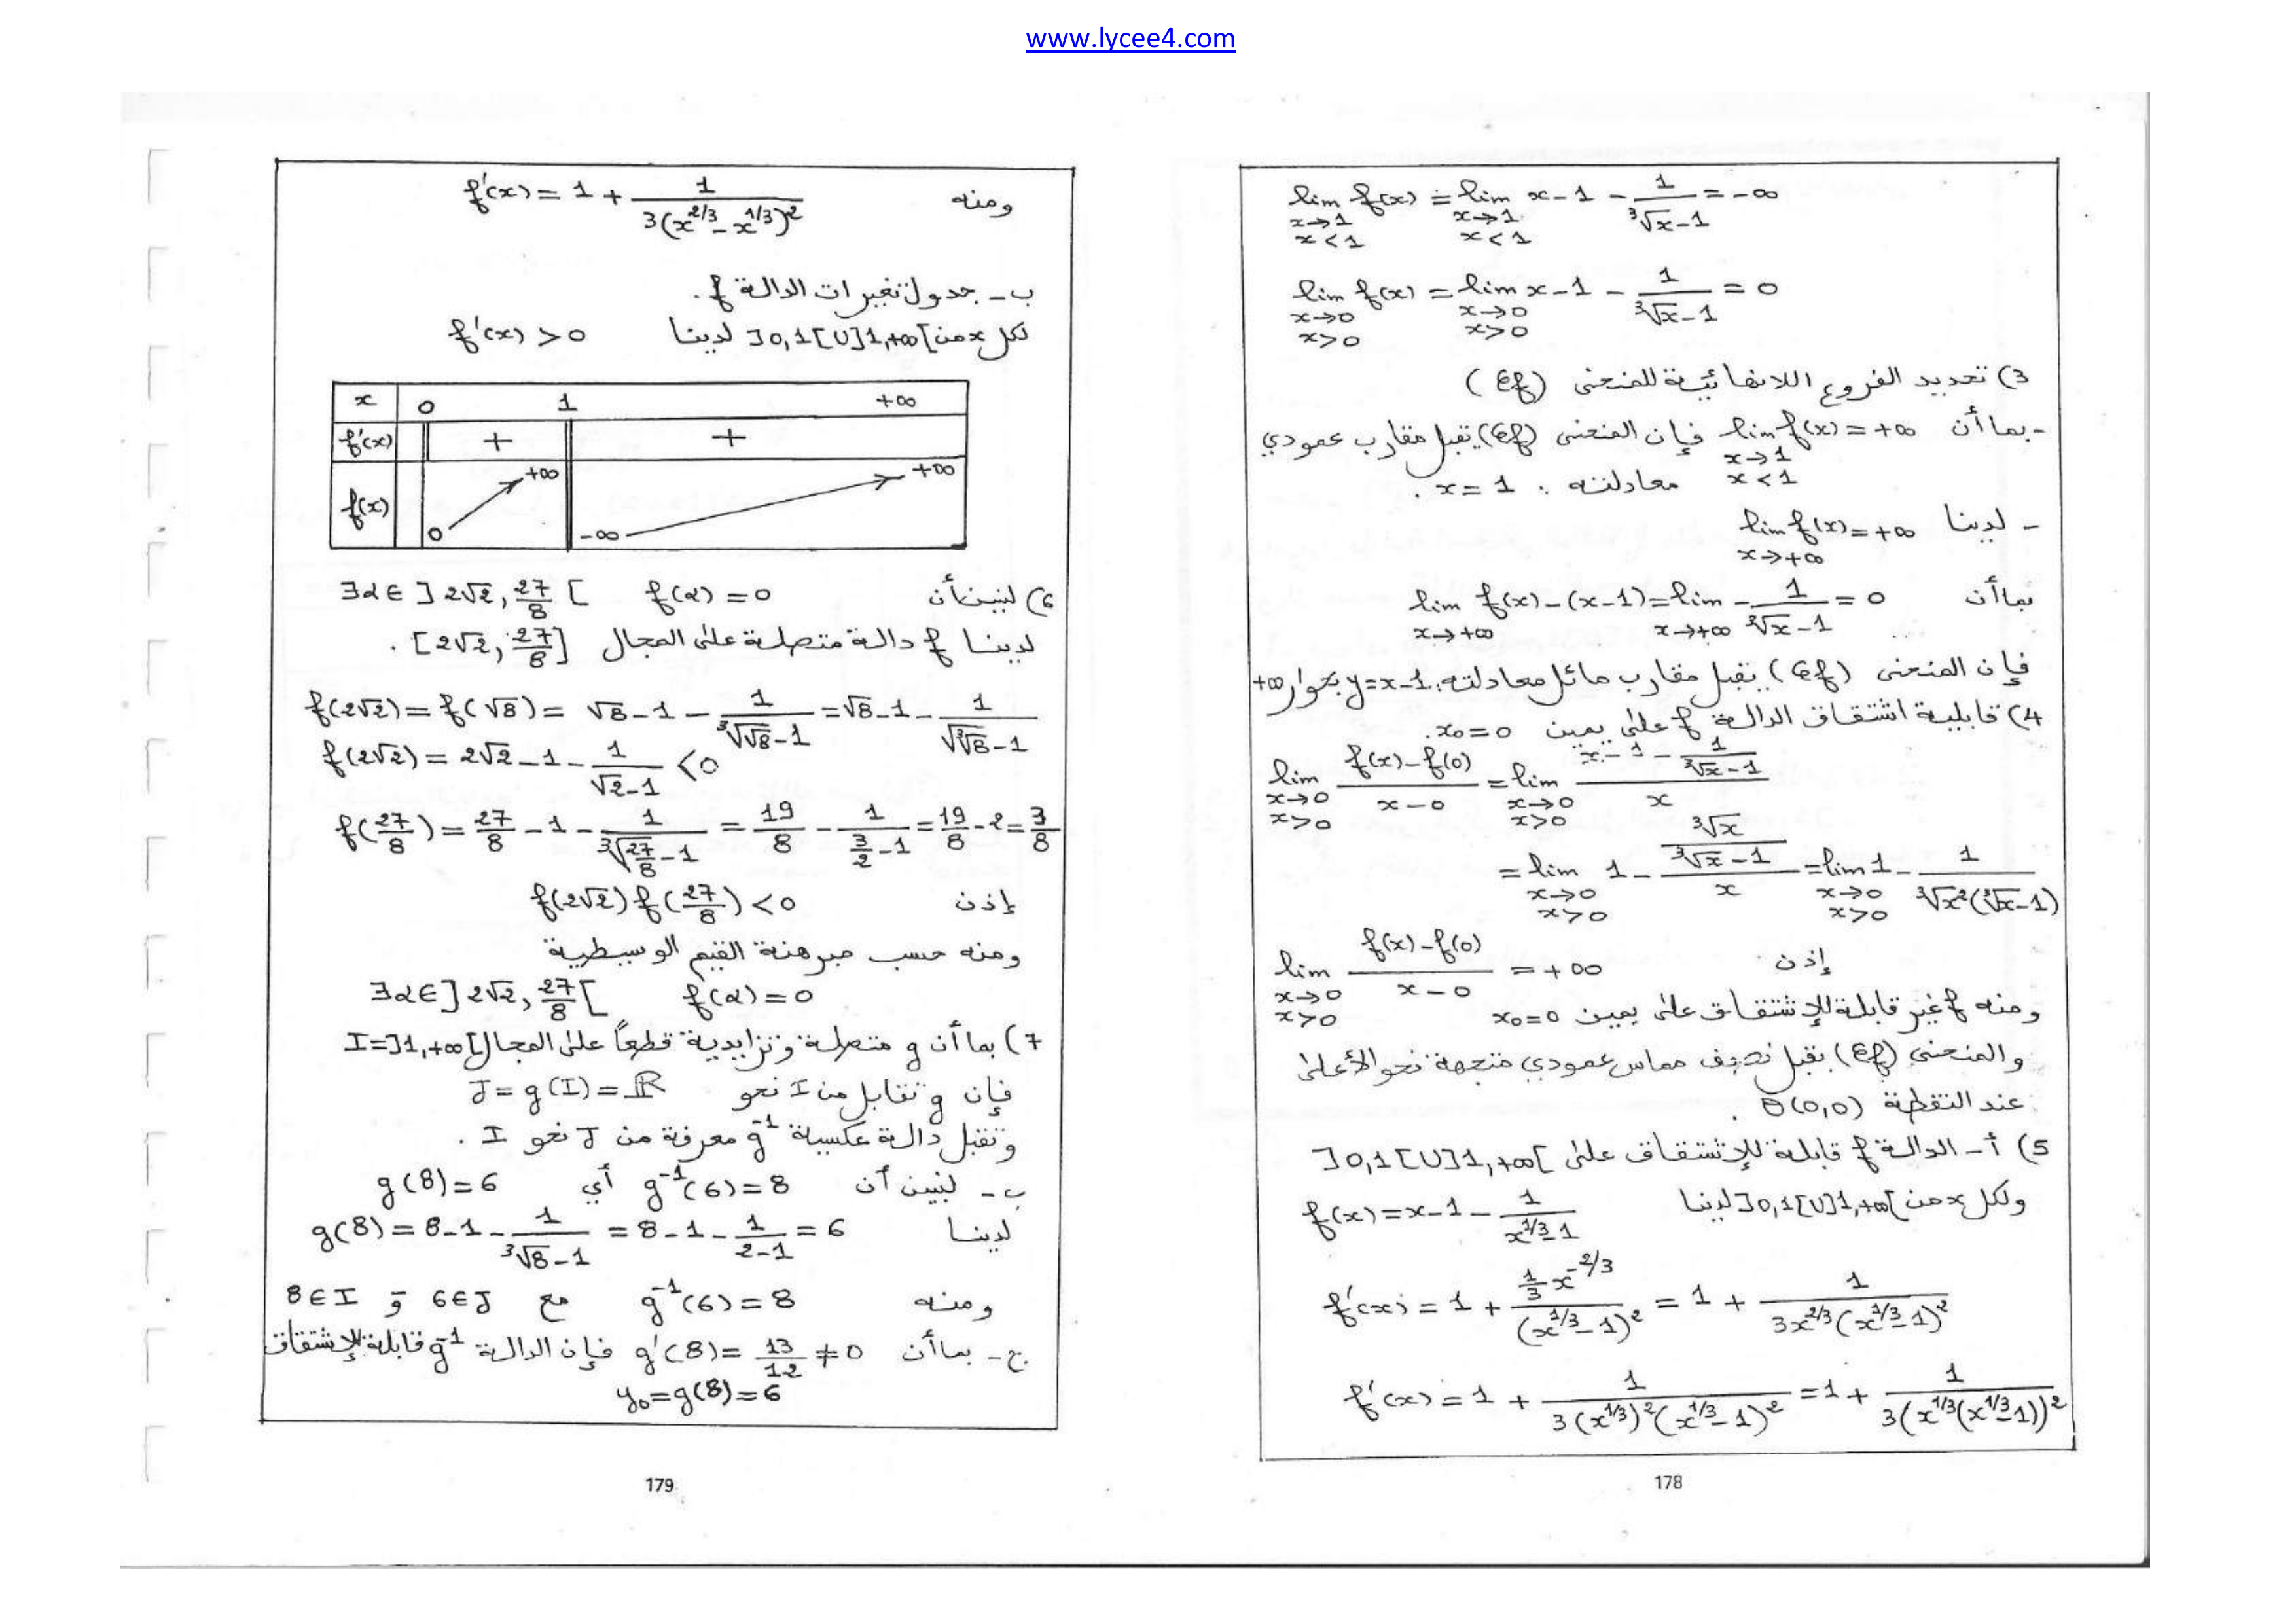 www.lycee4.com
lim f(x) = lim x-1 - 1/(∛x-1) = -∞
x→1 x→1
x<1 x<1
lim f(x) = lim x-1 - 1/(∛x-1) = 0
x→0 x→0
x>0 x>0
3) تحديد الفروع اللانهائية للمنحنى (Cf)
- بما أن lim f(x) = +∞ فإن المنحنى (Cf) يقبل مقارب عمودي
x→1
x<1 معادلته : x = 1 .
- لدينا lim f(x) = +∞
x→+∞
بما أن lim f(x)-(x-1) = lim - 1/(∛x-1) = 0
x→+∞ x→+∞
فإن المنحنى (Cf) يقبل مقارب مائل معادلته: y=x-1 بجوار +∞
4) قابلية اشتقاق الدالة f على يمين x₀=0.
lim (f(x)-f(0))/(x-0) = lim (x-1 - 1/(∛x-1))/x
x→0 x→0
x>0 x>0
= lim 1 - (∛x/(∛x-1))/x = lim 1 - 1/(∛x²(∛x-1))
x→0 x→0
x>0 x>0
إذن lim (f(x)-f(0))/(x-0) = +∞
x→0
x>0
ومنه f غير قابلة للإشتقاق على يمين x₀=0
والمنحنى (Cf) يقبل نصف مماس عمودي متجهة نحو الأعلى
عند النقطة O(0,0) .
5) أ- الدالة f قابلة للإشتقاق على ]0,1[U]1,+∞[
ولكل x من ]0,1[U]1,+∞[ لدينا f(x)=x-1 - 1/(x^1/3-1)
f'(x) = 1 + (1/3 x^-2/3)/(x^1/3-1)² = 1 + 1/(3x^2/3(x^1/3-1)²)
f'(x) = 1 + 1/(3(x^1/3)²(x^1/3-1)²) = 1 + 1/(3(x^1/3(x^1/3-1))²)
178
ومنه f'(x) = 1 + 1/(3(x^2/3-x^1/3)²)
ب- جدول تغيرات الدالة f.
لكل x من ]0,1[U]1,+∞[ لدينا f'(x) > 0
x 0 1 +∞
f'(x) + +
f(x) 0 +∞ -∞ +∞
6) لنبين أن ∃α∈]2√2,27/8[ f(α)=0
لدينا f دالة متصلة على المجال [2√2,27/8] .
f(2√2) = f(√8) = √8-1 - 1/(∛√8-1) = √8-1 - 1/(√∛8-1)
f(2√2) = 2√2-1 - 1/(√2-1) <0
f(27/8) = 27/8 -1 - 1/(∛(27/8)-1) = 19/8 - 1/(3/2-1) = 19/8-2 = 3/8
إذن f(2√2)f(27/8) <0
ومنه حسب مبرهنة القيم الوسيطية
∃α∈]2√2,27/8[ f(α)=0
7) بما أن g متصلة وتزايدية قطعًا على المجال I=]1,+∞[
فإن g تقابل من I نحو J=g(I)=ℝ
وتقبل دالة عكسية g⁻¹ معرفة من J نحو I .
ب- لنبين أن g⁻¹(6)=8 أي g(8)=6
لدينا g(8) = 8-1 - 1/(∛8-1) = 8-1 - 1/(2-1) = 6
ومنه g⁻¹(6)=8 مع 6∈J و 8∈I
ج- بما أن g'(8) = 13/12 ≠ 0 فإن الدالة g⁻¹ قابلة للإشتقاق
y₀=g(8)=6
179